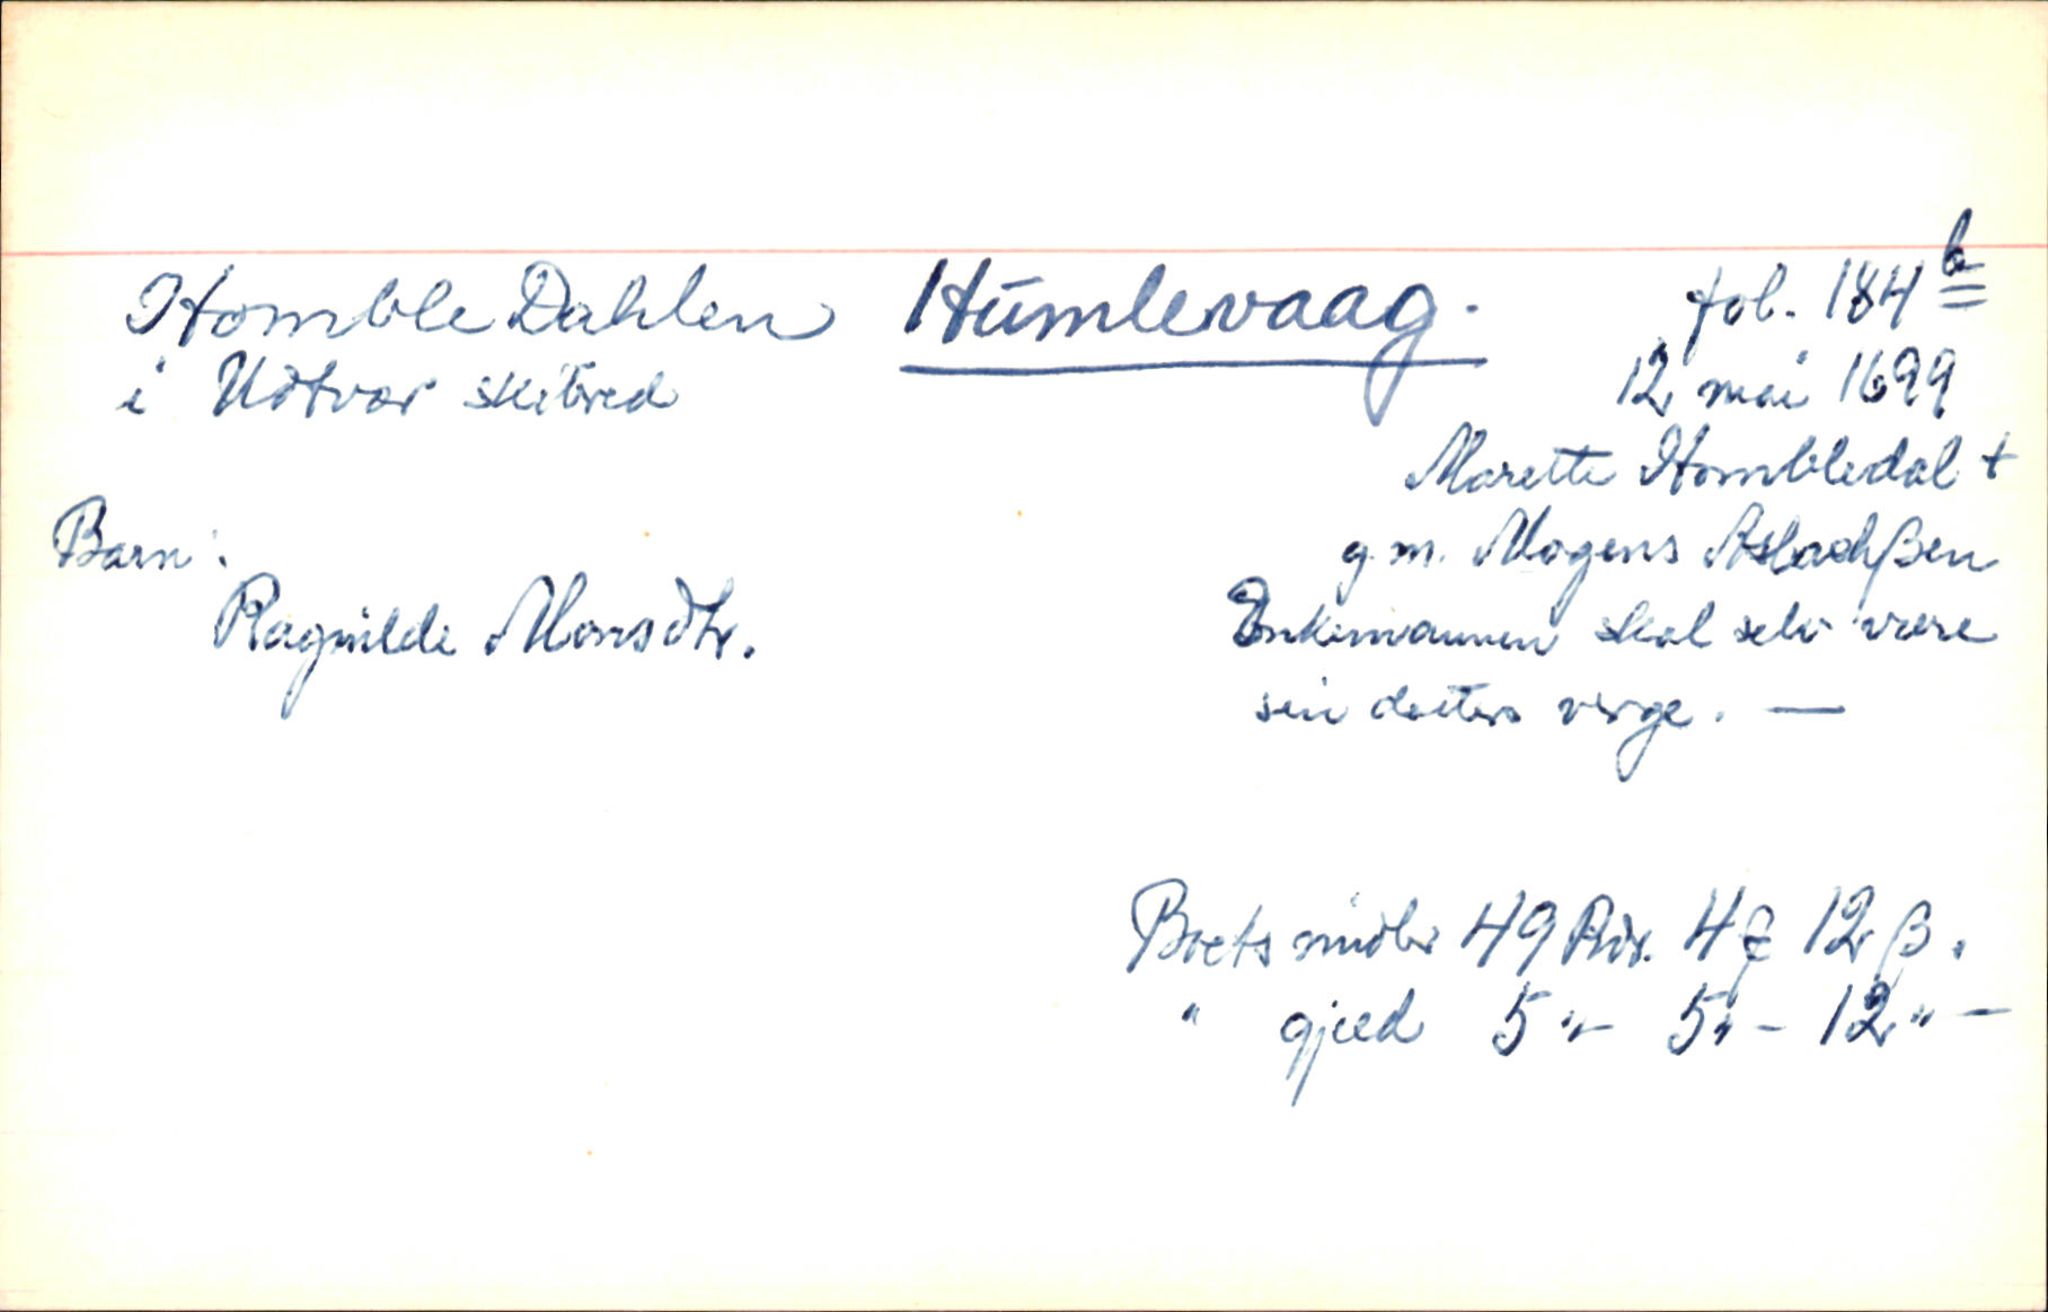 Homble Dahlen Humlevaag. fol. 184 b
i Udtvær skibred 12 mai 1699
Marette Hombledal +
g.m. Mogens Aslachßen
Enkemannen skal selv være
sin datters verge. —
Barn:
Ragnilde Monsdtr.
Boets midler 49 Rdr. 4 ƺ 12 β.
" gjeld 5 "- 5 "- 12 " -